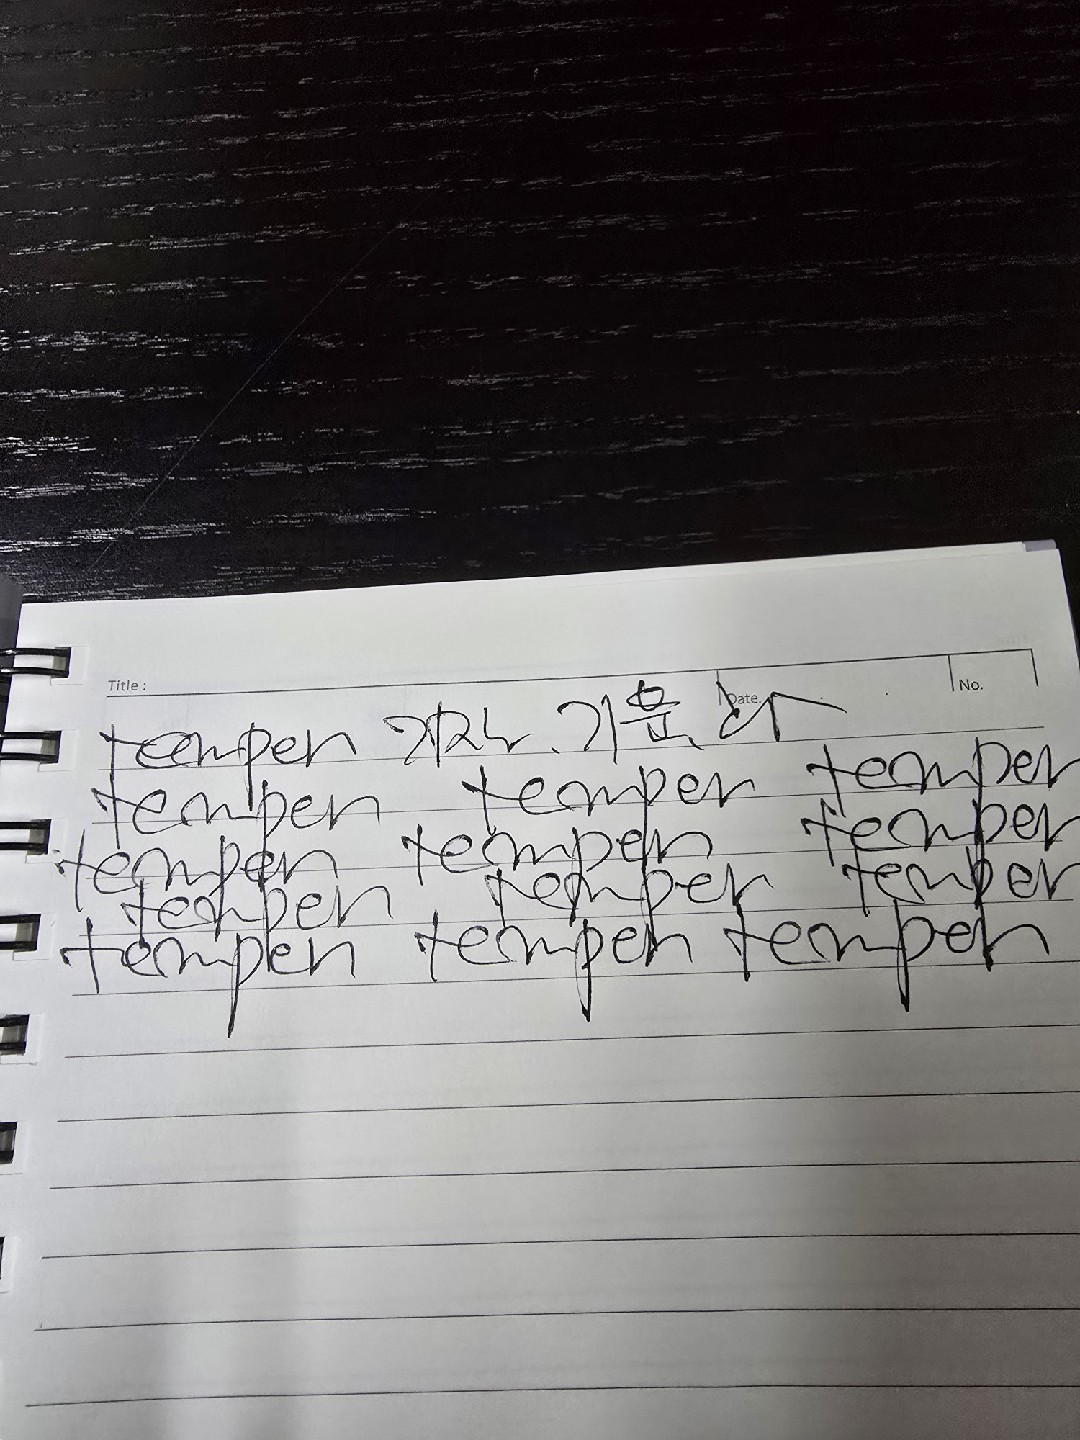 Title :
Date.
No.
temper 기질, 기분, 화
temper temper temper
temper temper temper
temper temper temper
temper temper temper